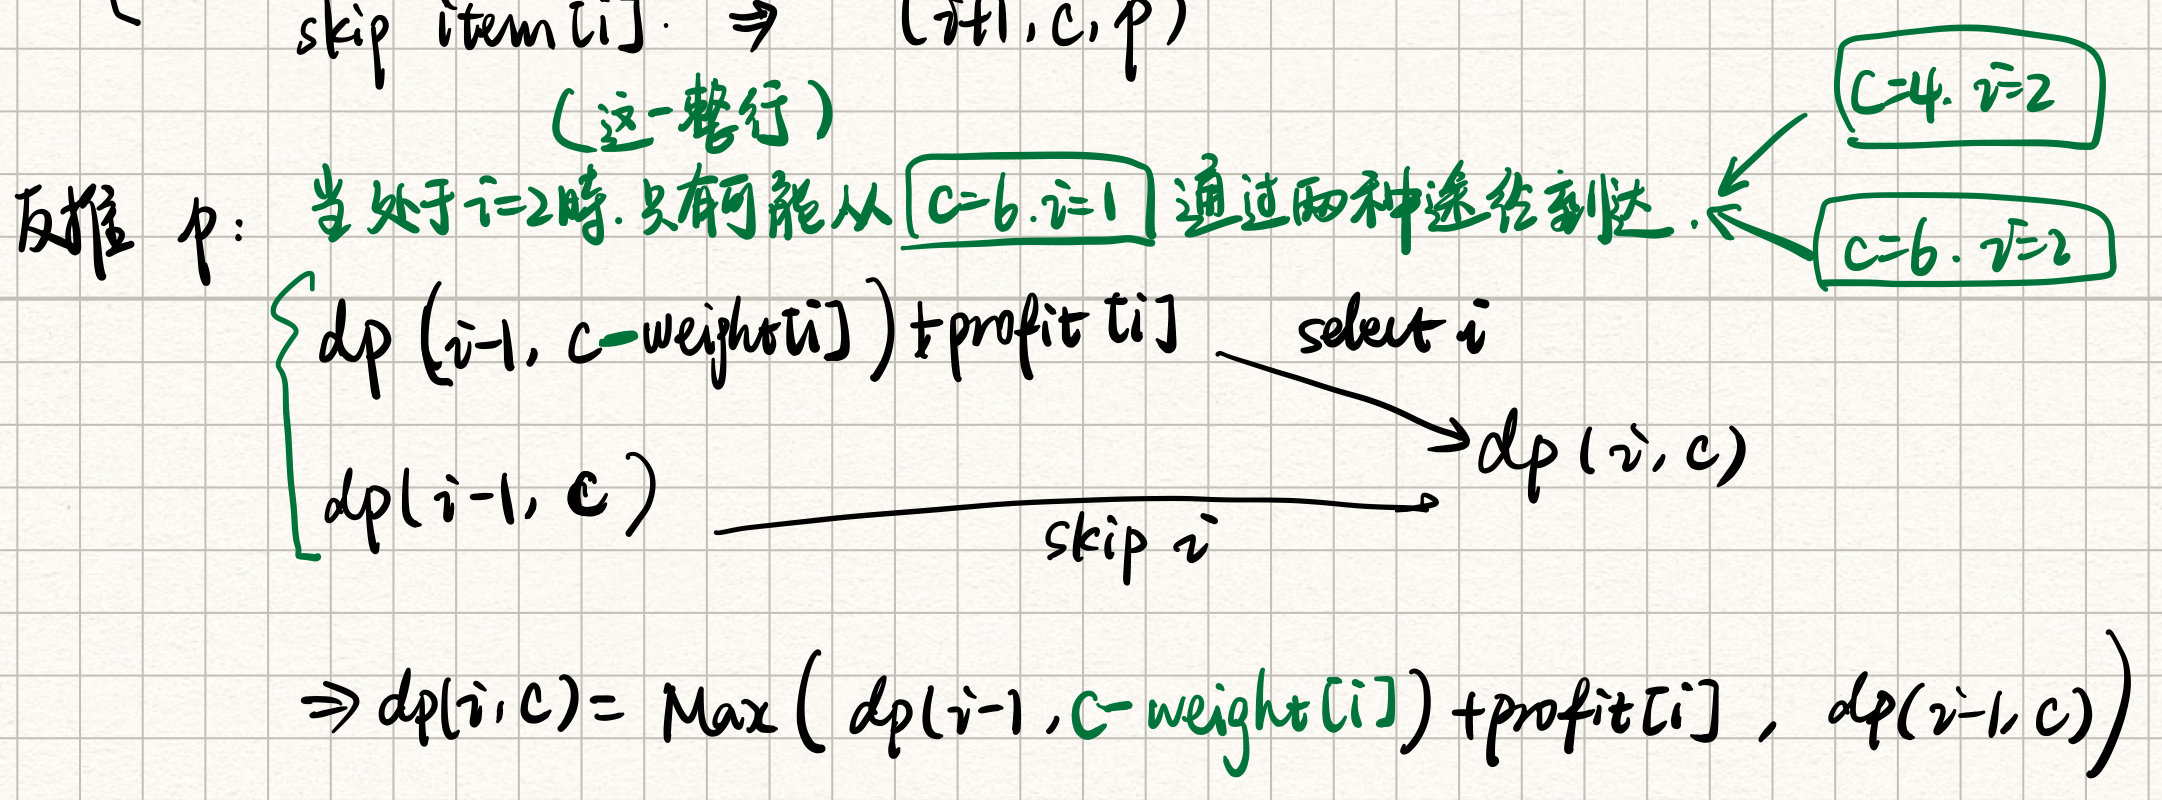 skip item[i]. ⇒ (i+1, c, p)
(这一整行)
c=4. i=2
反推 p: 当处于i=2時. 只有可能从 c=6. i=1 通过两种途径到达.
c=6. i=2
dp(i-1, c-weight[i])+profit[i] select i
dp(i, c)
dp(i-1, c)
skip i
⇒ dp(i, c)= Max( dp(i-1, c-weight[i])+profit[i], dp(i-1, c))